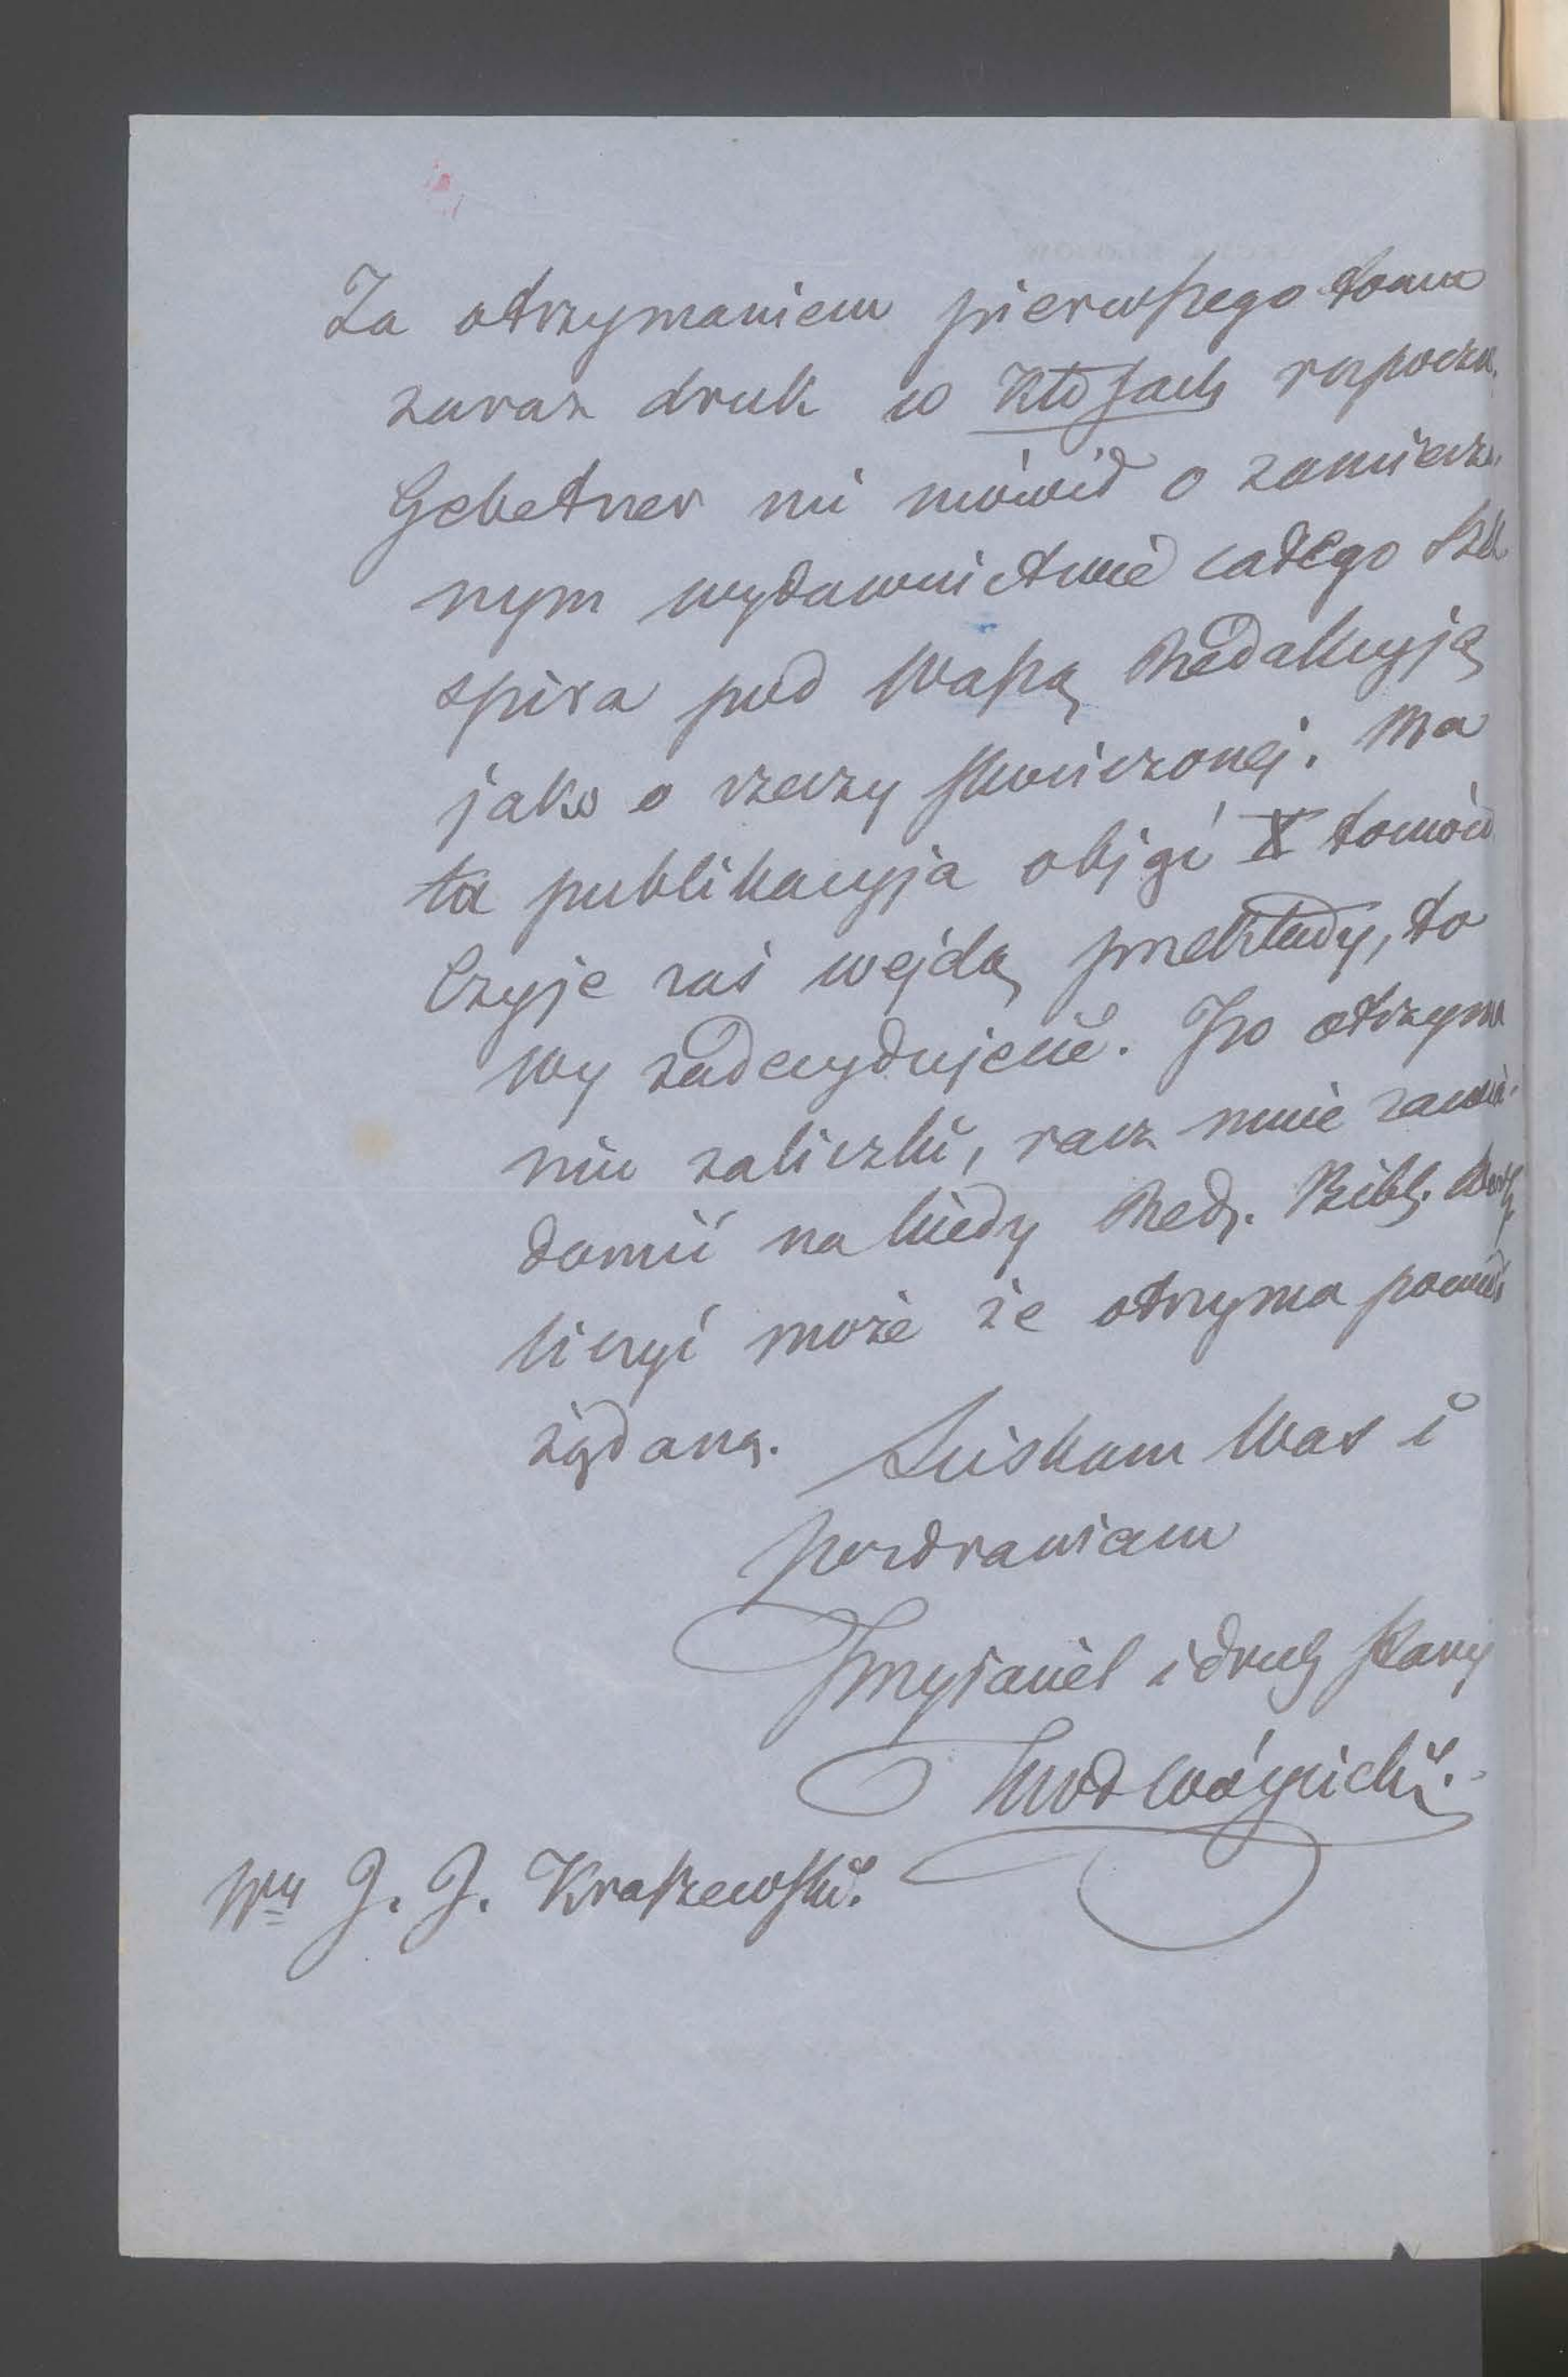 Za otrzymaniem pierwszego tomu
zaraz druk w Kłosach rozpoczn.
Gebetner mi mówił o zamierzo.
nym wydawnictwie całego Sze
spira pod Waszą Redakcyją
jako o rzeczy skończonej. Ma
ta publikacyja objąć X tomów
Czyje zaś wejdą przekłady, to
Wy zadecydujecie. Po otrzyma
niu zaliczki, racz mnie zawia-
domić na kiedy Red. Bibl.
liczyć może że otrzyma powieść
żądaną. Sciskam Was i
pozdrawiam
Przyjaciel i druh stary
KWł Wóycicki.
Wny J. J. Kraszewski.